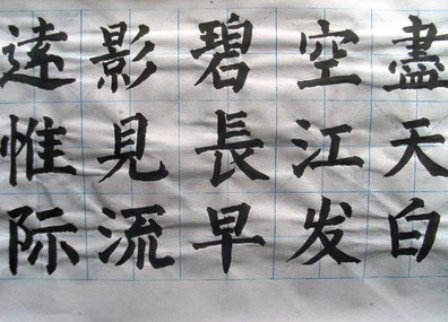 遠影碧空盡
惟見長江天
际流早发白